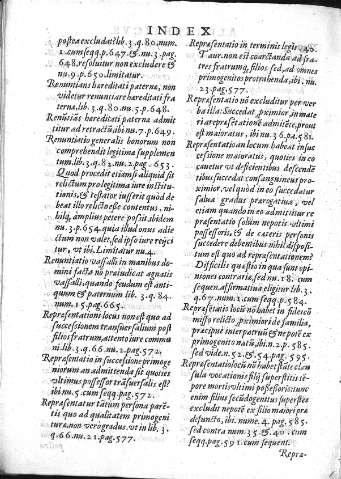 INDEX
postea excludat? lib. 3. q. 80. num.
1. cum seqq. p. 647. & nu. 3. pag.
648. resoluitur non excludere &
nu. 9. p. 650. limitatur.
Renuntians hæreditati paterna, non
videtur renuntiare hareditati fra
terna, lib. 3. q. 80. nu. 5. p. 648.
Renũtiãs hareditati paterna admit
titur ad retractũ ibi nu. 7. p. 649.
Renuntiatio generalis bonorum non
comprehendit legitima supplemen
tum. lib. 3. q. 82. nu. 2. pag. 653.
Quod procedit etiamsi aliquid sit
relictum pro legitima iure institu
tionis, & testator iusserit quod de
beat illo relicto esse contentus, ni-
hilq, amplius petere possit. ibidem
nu. 3. p. 654. quia illud onus adie
ctum non valet, sed ipso iure reijci
tur, vt ibi. Limitatur nu. 4.
Renuntiatio vassalli in manibus do-
mini facta nõ praiudicat agnatis
vassalli, quando feudum est anti-
quum & paternum lib. 3. q. 84.
num. 15. pag. 665.
Representationis locus non est quo ad
successionem transuersalium post
filios fratrum, attento iure commu
ni lib. 3. q. 66. nu. 2. pag. 572.
Representatio in successione primoge
niturum an admittenda sit quoties
vltimus possessor trãsuersalis est?
ibi nu. 5. cum seqq. pag. 572.
Representatur tantum persona pare-
tis quo ad qualitatem primogeni
tura, non verò gradus, vt in lib. 3.
q. 66. nu. 21. pag. 577.
Representatio in terminis legit. 40.
Taur. non est coarctanda ad fra-
tres fratrumq, filios, sed ad omnes
primogenitos protrahenda, ibi. nu.
23. pag. 577.
Representatio nõ excluditur per ver
ba illa: Succedat, pximior, in mate
ria representatione admittẽte, prout
est maioratus, ibi nu. 36. pa. 581.
Representationi an locum habeat in suc
cessione maioratus, quoties in eo
cauetur vt deficientibus descenden
tibus succedat consanguineus pro-
ximior, vel quòd in eo succedatur
saluo gradus prærogatiua, vel
etiam quando in eo admittitur re
presentatio solùm nepotis vltimi
possessoris, & de cæteris personis
succedere debentibus nihil disposi-
tum est quo ad representationem?
Difficilis quæstio in qua sunt opi-
niones contraria, sed nu. 28. cum
sequen. affirmatiua eligitur lib. 3.
q. 67. num. 2. cum seqq. p. 584.
Repræsẽtatio locũ nõ habet in fideicõ
misso relicto, pximiori de familia,
præcipuè inter patruũ & nepotẽ ex
primogenito natũ, ibi. n. 2. p. 585.
sed vide n. 52. & 54. pag. 595.
Representatio locũ nõ habet stãte clau
sula vocationis filij superstitis tẽ-
pore mortis vltimi possessoris: tunc
enim filius secũdogenitus superstes
excludit nepotẽ ex filio maiori præ
defuncto, ibi. nume. 4. pag. 585.
sed contra num. 35. & 40. cum
seqq. pag. 591. cum sequent.
Repræ-